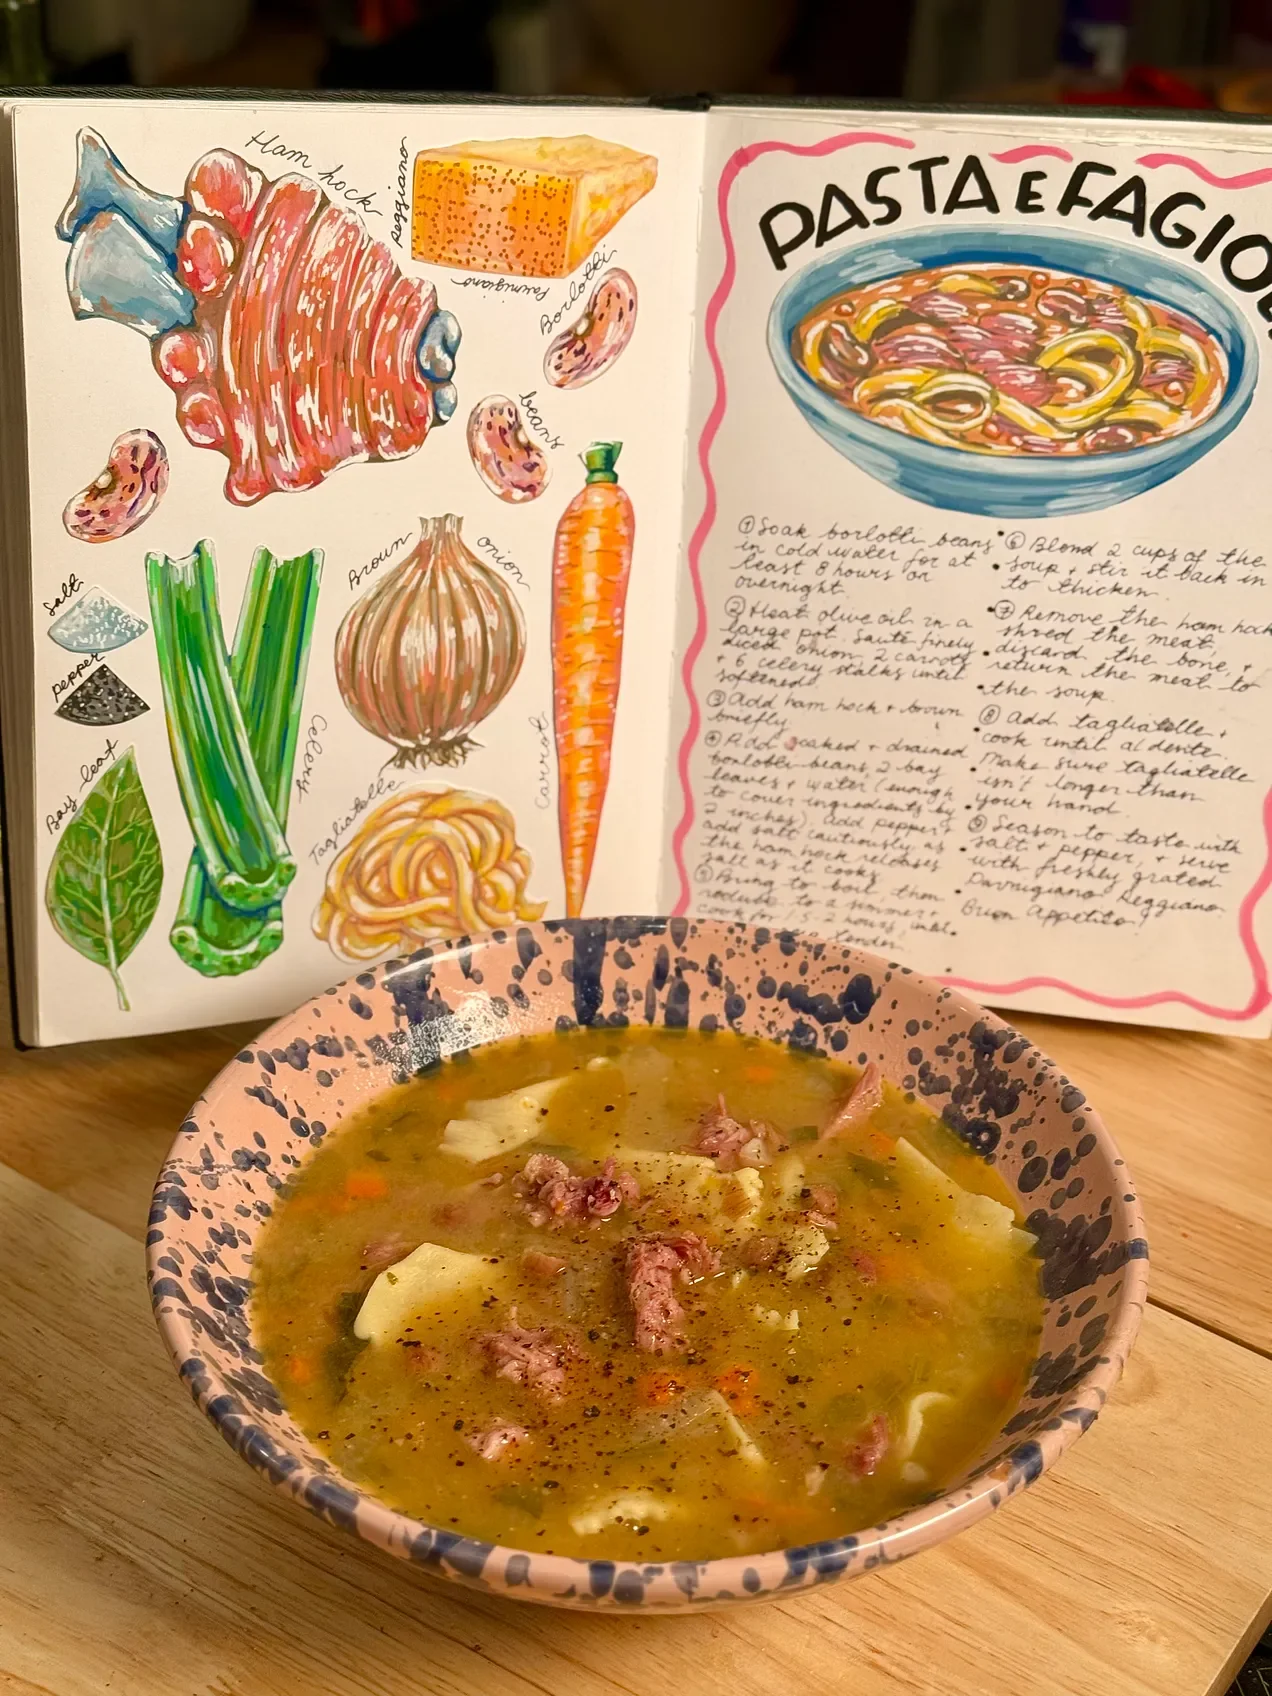 Ham hock
Reggiano
Parmigiano
Borlotti
beans
Brown
onion
Salt
pepper
Bay leaf
Celery
Tagliatelle
Carrot
PASTA E FAGIO
① Soak borlotti beans
in cold water for at
least 8 hours or
overnight.
② Heat olive oil in a
large pot. Sauté finely
diced onion, 2 carrots
+ 6 celery stalks until
softened.
③ Add ham hock + brown
briefly.
④ Add soaked + drained
borlotti beans, 2 bay
leaves + water (enough
to cover ingredients by
2 inches), add pepper +
add salt cautiously, as
the ham hock releases
salt as it cooks
⑤ Bring to boil, then
reduce to a simmer +
cook for 1.5-2 hours, until
tender
⑥ Blend 2 cups of the
soup + stir it back in
to thicken.
⑦ Remove the ham hock
shred the meat,
discard the bone, +
return the meat to
the soup.
⑧ Add tagliatelle +
cook until al dente.
Make sure tagliatelle
isn't longer than
your hand.
⑨ Season to taste with
salt + pepper, + serve
with freshly grated
Parmigiano Reggiano.
Buon Appetito!